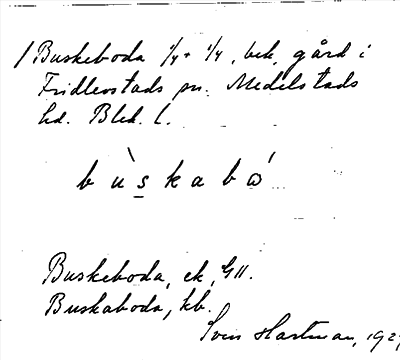 Buskeboda 1/4 + 1/4, bek. gård i
Fridlevstads sn. Medelstads
hd. Blek. l.
bùskabó
Buskeboda, ek. G11.
Buskaboda, kb.
Sven Hartman, 192